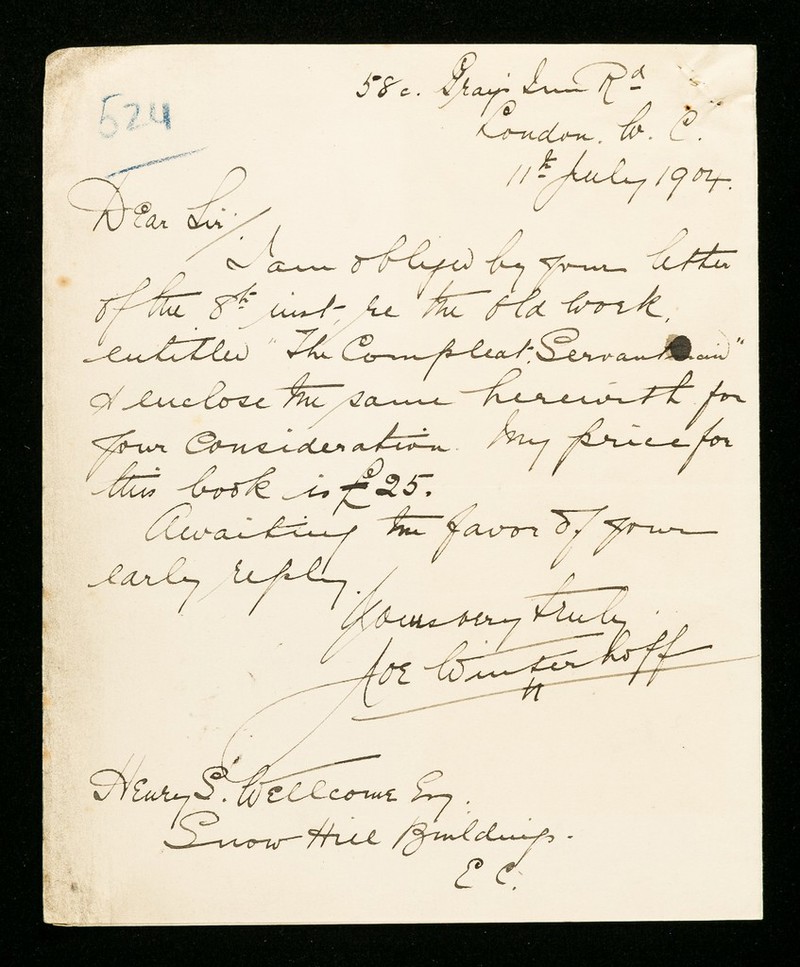 58c. Grays Inn Rd
London. W. C.
524
11th July 1904.
Dear Sir/
I am obliged by your letter
of the 8th inst, re the old work,
entitled "The Compleat Servant "
& enclose the same herewith for
your consideration. My price for
this book is £25.
Awaiting the favor of your
early reply.
Yours very truly
Joe Winterhoff
Henry S. Wellcome Esq.
Snow Hill Buildings.
E C.